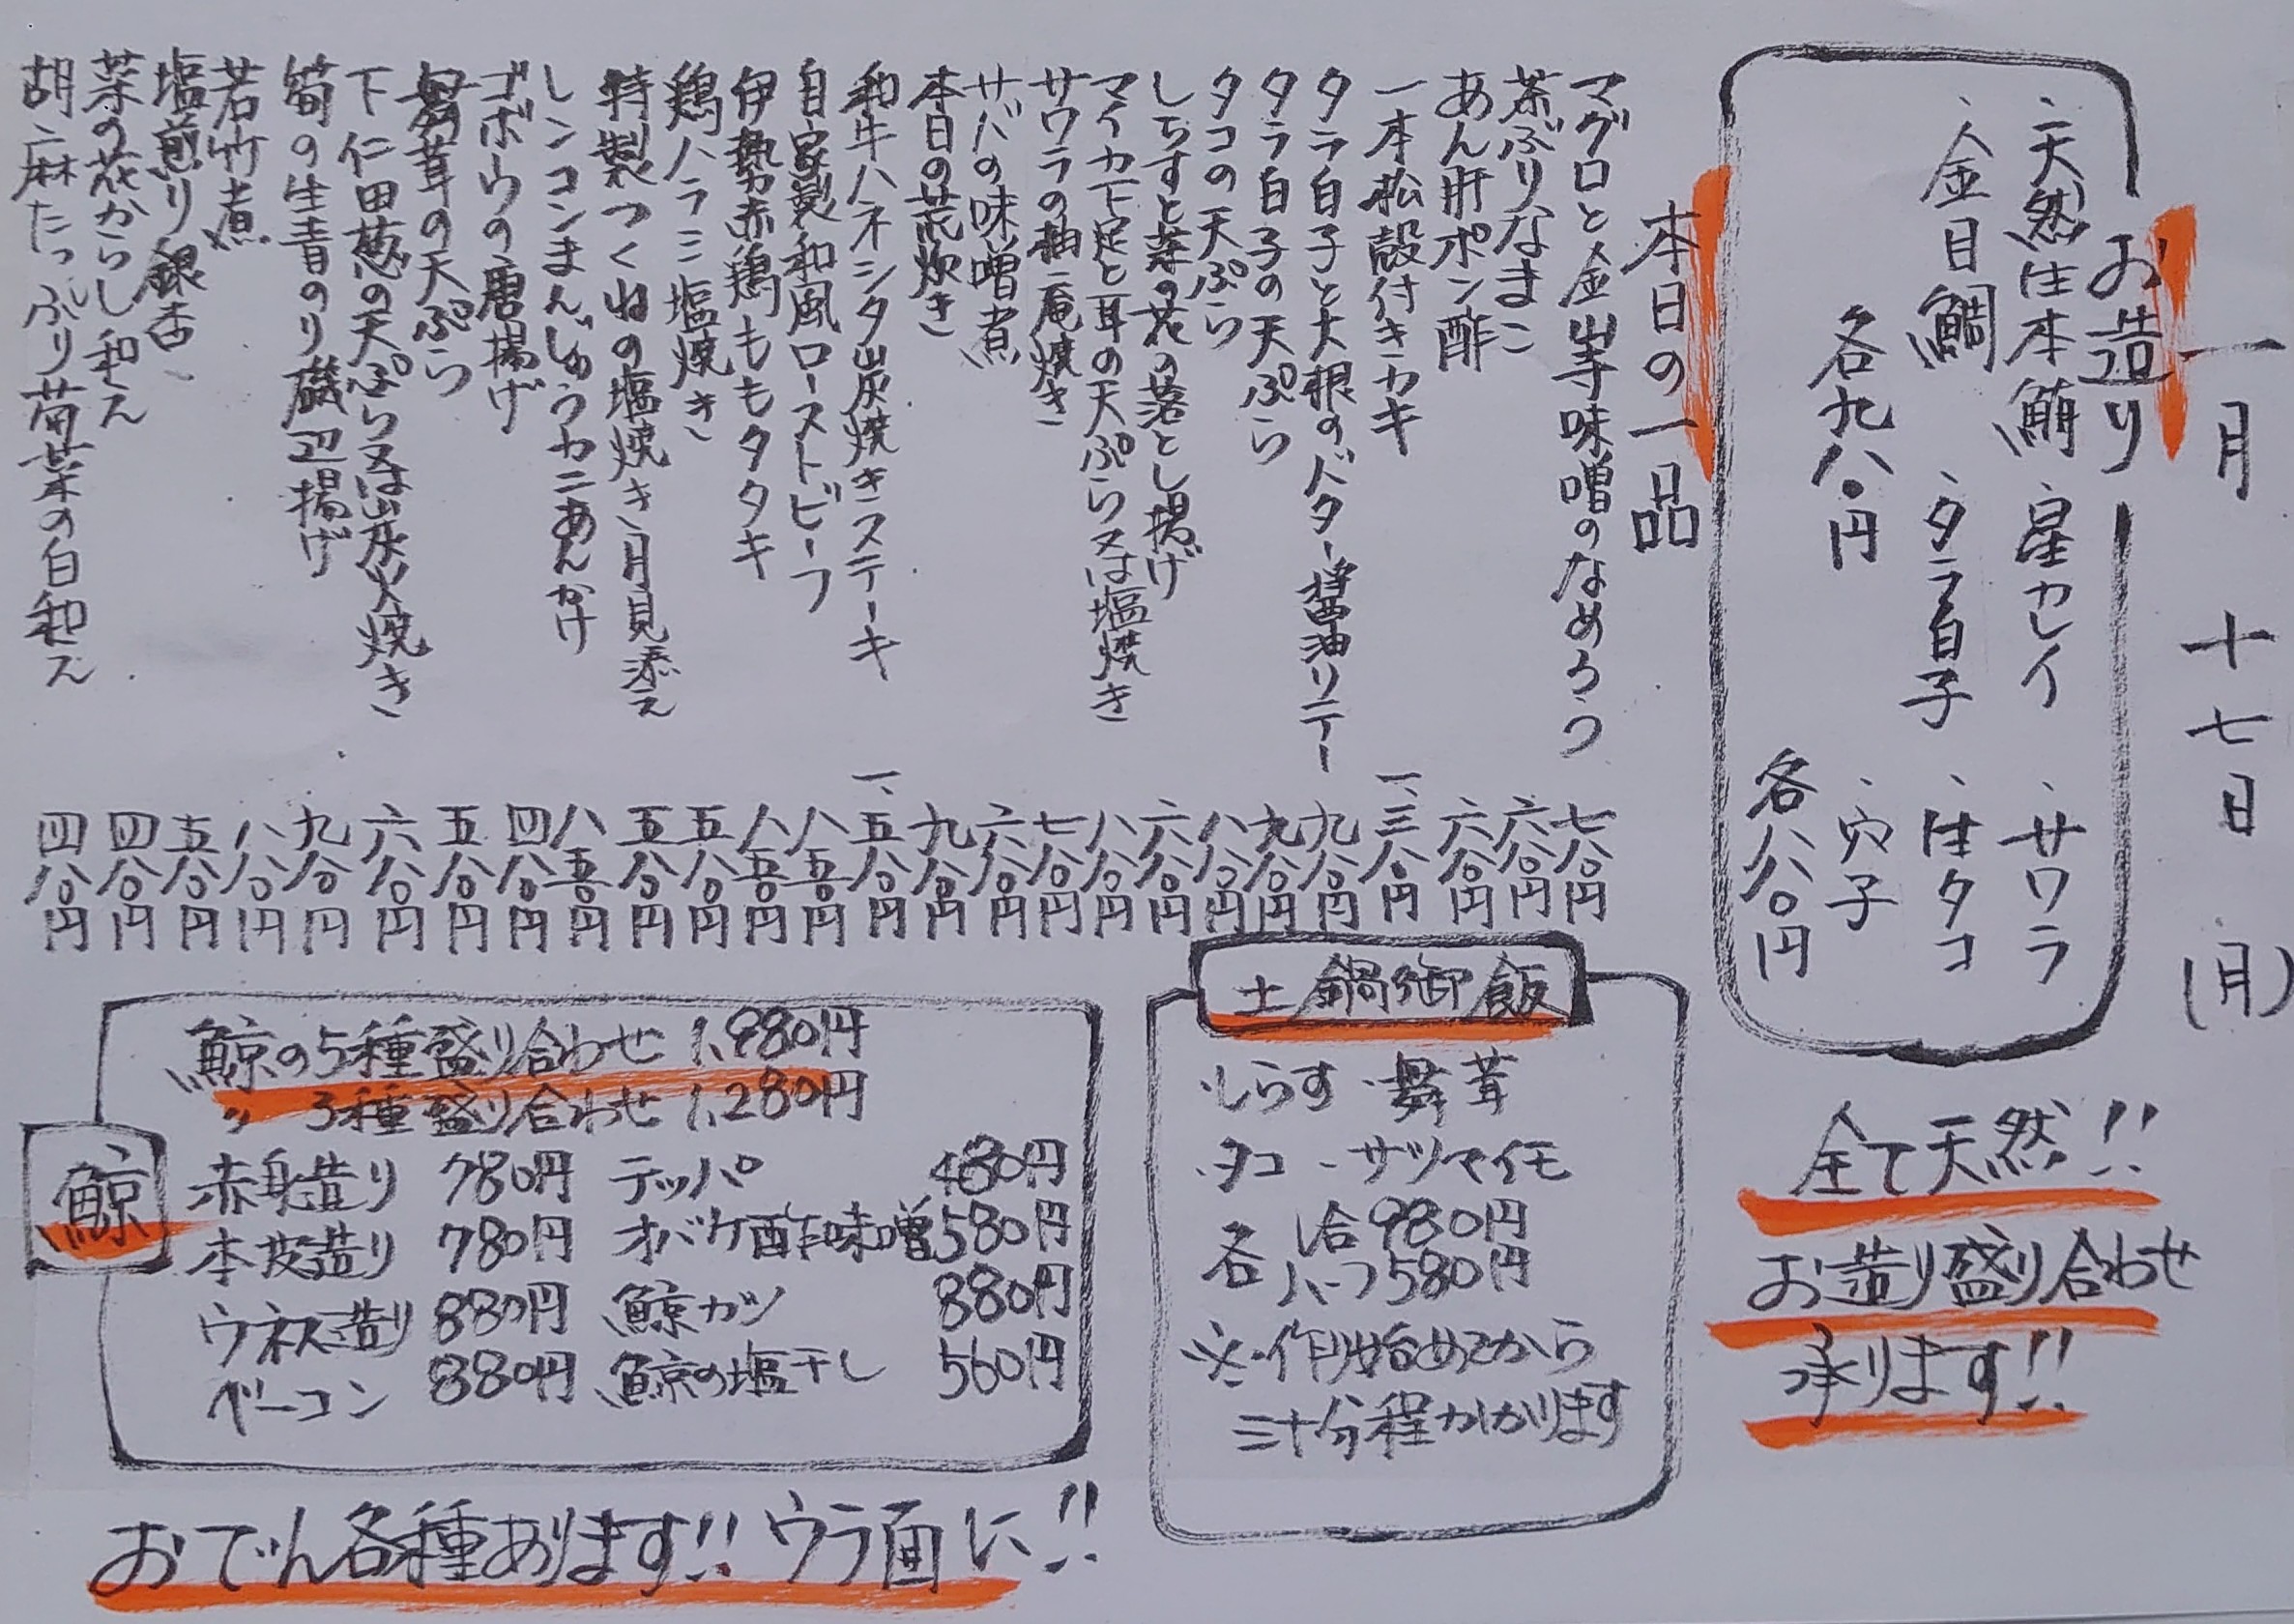 一月 十七日 (月)
お造り
・天然生本鮪 ・星カレイ ・サワラ
・金目鯛 ・タラ白子 ・生タコ
・穴子
各九八〇円
各八八〇円
本日の一品
マグロと金山寺味噌のなめろう 七八〇円
茶ぶりなまこ 六八〇円
あん肝ポン酢 六八〇円
一本松殻付きカキ 一、三八〇円
タラ白子と大根のバター醤油ソテー 九八〇円
タラ白子の天ぷら 九八〇円
タコの天ぷら 八八〇円
しらすと菜の花の落とし揚げ 六八〇円
マイカ下足と耳の天ぷら又は塩焼き 八八〇円
サワラの柚庵焼き 七八〇円
サバの味噌煮 六八〇円
本日の荒炊き 九八〇円
和牛ハネシタ炭焼きステーキ 一、五八〇円
自家製和風ローストビーフ 八五〇円
伊勢赤鶏ももタタキ 八五〇円
鶏ハラミ塩焼き 五八〇円
特製つくねの塩焼き、月見添え 五八〇円
レンコンまんじゅうカニあんかけ 八五〇円
ゴボウの唐揚げ 四八〇円
舞茸の天ぷら 五八〇円
下仁田葱の天ぷら又は炭火焼き 六八〇円
筍の生青のり磯辺揚げ 九八〇円
若竹煮 八八〇円
塩煎り銀杏 五八〇円
菜の花からし和え 四八〇円
胡麻たっぷり菊菜の白和え 四八〇円
全て天然!!
お造り盛り合わせ
承ります!!
土鍋御飯
・しらす ・舞茸
・タコ ・サツマイモ
各 1合 980円
各 ハーフ 580円
※作り始めてから
三十分程かかります
鯨
鯨の5種盛り合わせ 1,980円
〃 3種盛り合わせ 1,280円
赤身造り 780円 テッパ 480円
本皮造り 780円 オバケ酢味噌 580円
ウネス造り 880円 鯨カツ 880円
ベーコン 880円 鯨の塩干し 560円
おでん各種あります!! ウラ面に!!